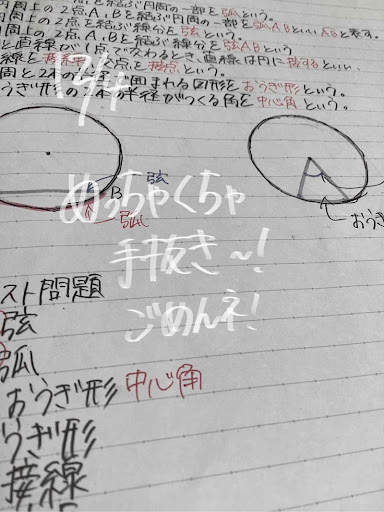 円周上の2点A,Bを結ぶ円周の一部を弧という。
円周上の2点A,Bを結ぶ円周の一部を弧ABといい、ABと表す。
円周上の2点を結ぶ線分を弦という。
周上の2点A,Bを結ぶ線分を弦ABという
と直線が1点で交わるとき、直線は円に接するといい、
線を接線、点を接点という。
周と2本の で囲まれる図形をおうぎ形という。
うぎ形の2本の半径がつくる角を中心角という。
弦
B
弧
おうぎ
めっちゃくちゃ
手抜き〜!
ごめんネ!
スト問題
弦
弧
おうぎ形 中心角
うぎ形
接線